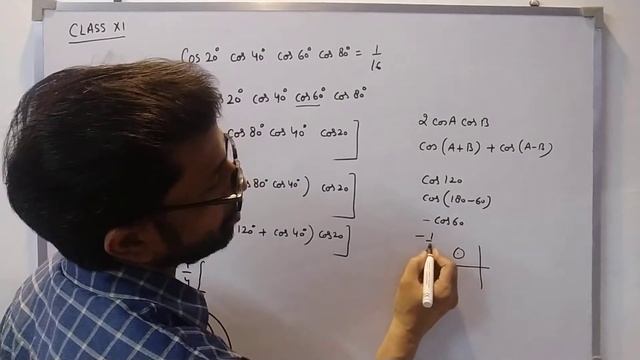 CLASS XI
Cos 20° cos 40° cos 60° cos 80° = 1/16
20° cos 40° cos 60° cos 80°
cos 80° cos 40° cos 20 ]
cos 80° cos 40° ) cos 20 ]
120° + cos 40° ) cos 20 ]
1/4 [
2 cos A cos B
cos (A+B) + cos (A-B)
Cos 120
cos (180-60)
- cos 60
- 1